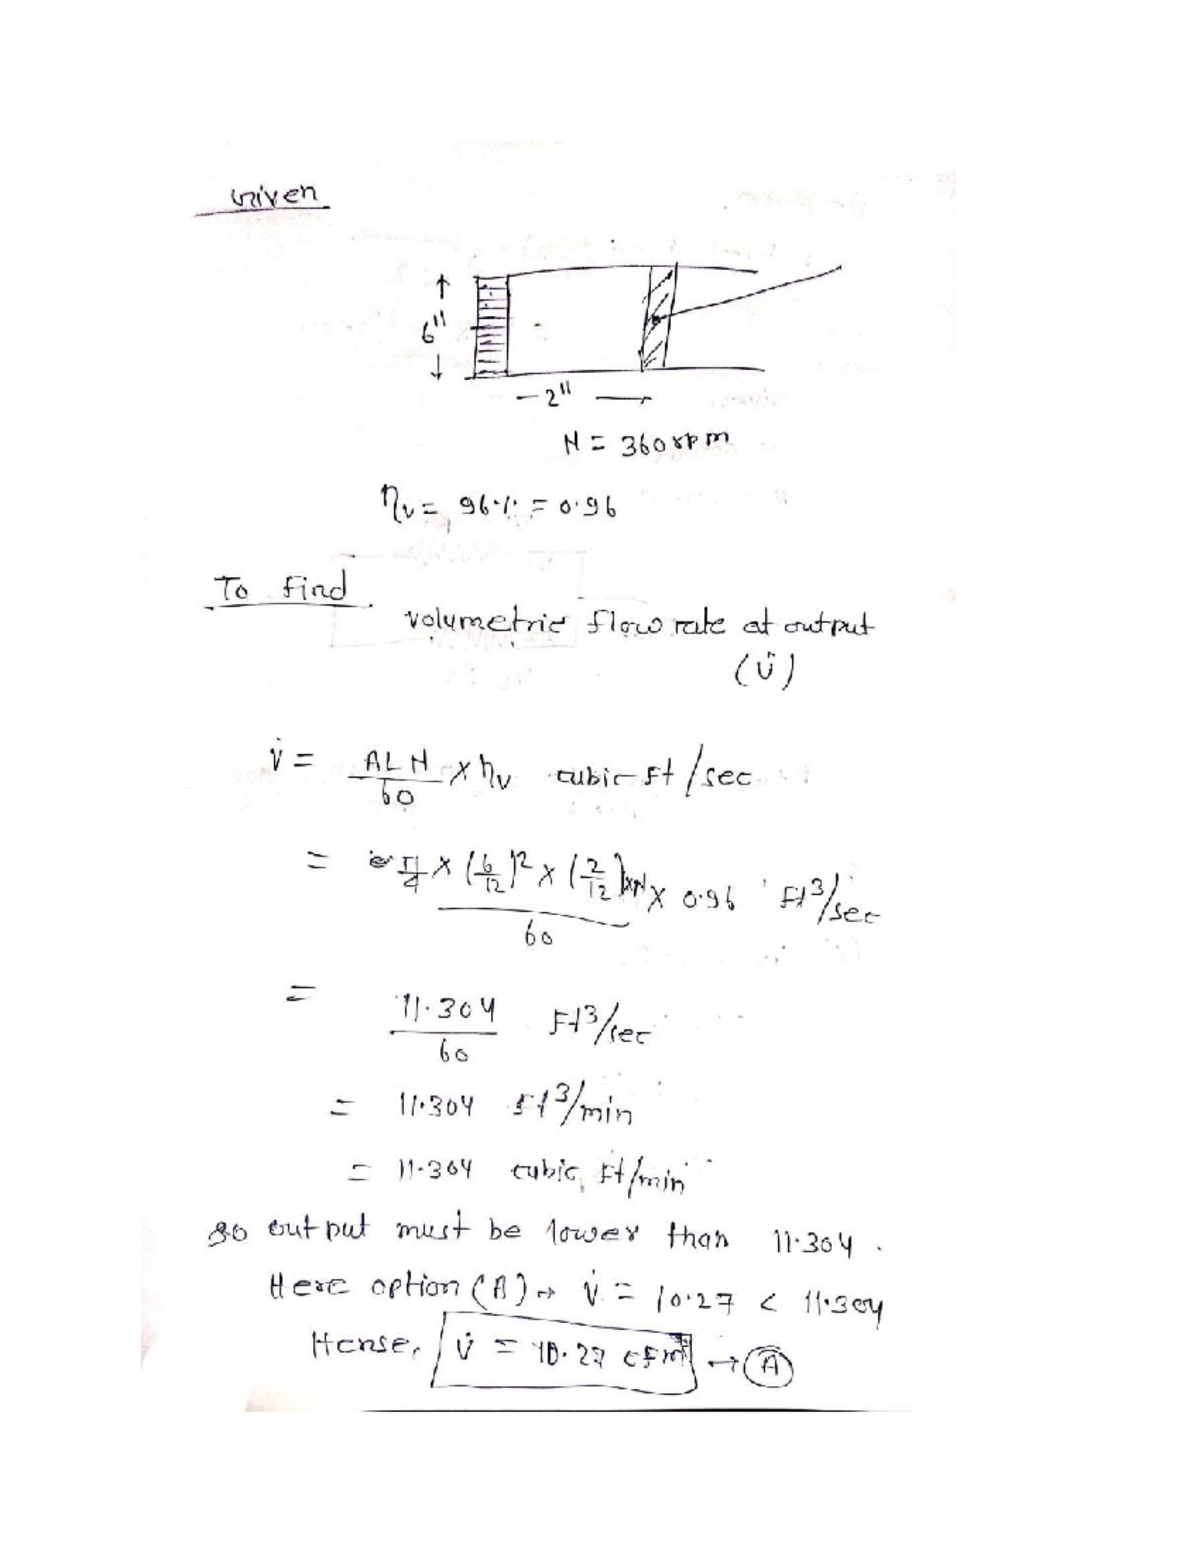 Given
6"
2"
N = 360 rpm
ηv = 96% = 0.96
To Find
volumetric flow rate at output
(V̇)
V̇ = ALN/60 × ηv cubic ft/sec
= π/4 × (6/12)² × (2/12) × N/60 × 0.96 Ft³/sec
= 11.304/60 Ft³/sec
= 11.304 Ft³/min
= 11.304 cubic ft/min
so output must be lower than 11.304.
Here option (A) → V̇ = 10.27 < 11.304
Hense, V̇ = 10.27 cfm → (A)